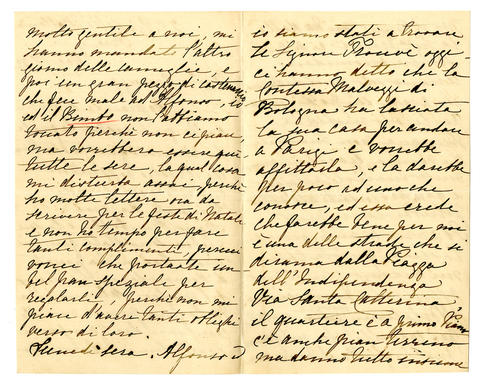 molto gentile a noi, mi
hanno mandato l'altro
giorno delle triglie, e
poi un gran pezzo di castagnaccio
che fece male ad Alfonso, io
ed il Bimbo non l'abbiamo
toccato perchè non ci piace,
ma vorrebbero essere qui
tutte le sere, la qual cosa
mi disturba assai perchè
ho molte lettere ora da
scrivere per le feste di Natale
e non ho tempo per fare
tanti complimenti, percui
vorrei che portaste un
bel pan speziale per
regalarli, perchè non mi
piace d'avere tanti oblighi
verso di loro.
Lunedì sera. Alfonso ed
io siamo stati a trovare
le Signore oggi
ci hanno detto che la
Contessa Malvezzi di
Bologna ha lasciata
la sua casa per andare
a Parigi e vorrebbe
affittarla, e la darebbe
per poco ad uno che
conosce, ed essa crede
che farebbe bene per noi
è una delle strade che si
dirama dalla Piazza
dell'Indipendenza
Via Santa Catterina,
il quartiere è a primo Piano
c'è anche pian terreno
ma danno tutto insieme